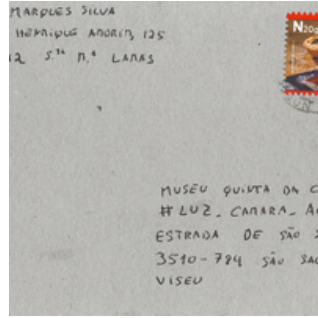 MARQUES SILVA
HENRIQUE
125
LARAS
N20g
MUSEU QUINTA DA C
#LUZ_CAMARA_A
ESTRADA DE SÃO
3510-784 SÃO SA
VISEU